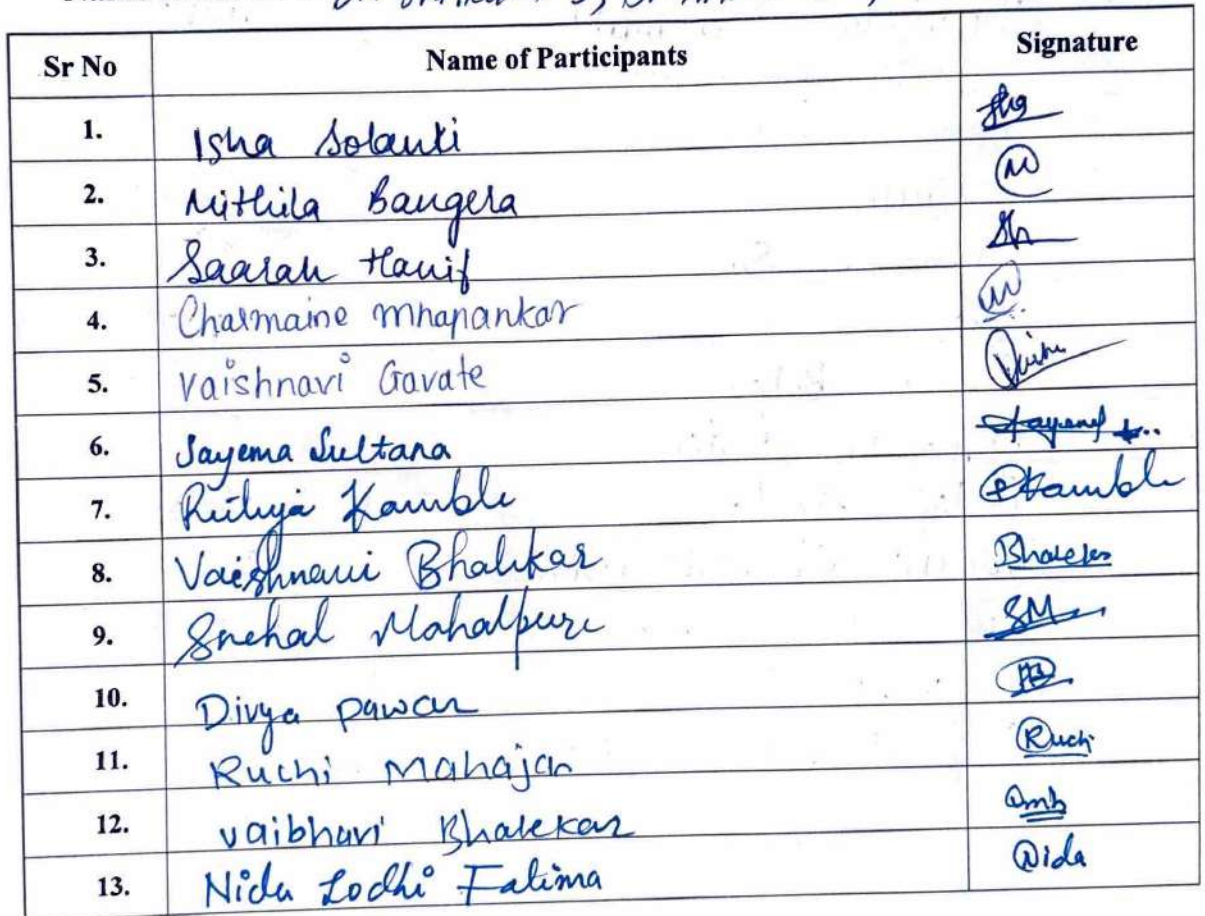 Sr No Name of Participants Signature
1. Isha Solanki
2. Mithila Bangera
3. Saarah Hanif
4. Charmaine Mhapankar
5. Vaishnavi Gavate
6. Sayema Sultana
7. Rutuja Kamble PKamble
8. Vaishnavi Bhalekar Bhalekar
9. Snehal Mahalpure SM
10. Divya Pawar
11. Ruchi Mahajan Ruchi
12. Vaibhavi Bhalekar
13. Nida Lodhi Fatima Nida